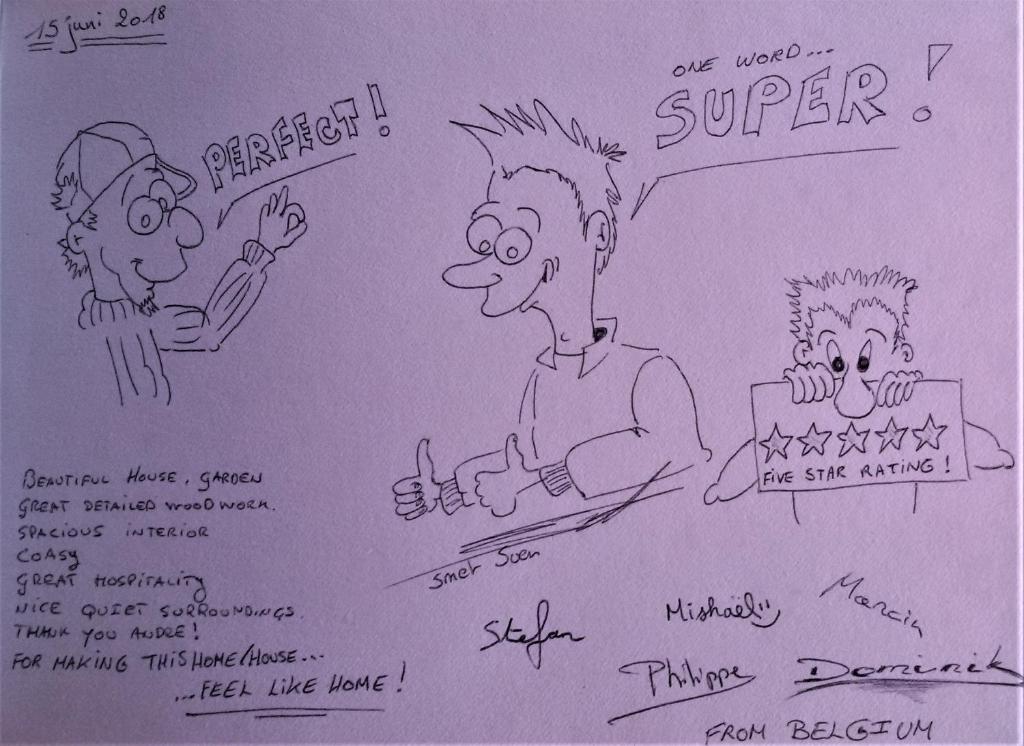 15 juni 2018
PERFECT!
ONE WORD...
SUPER!
FIVE STAR RATING!
BEAUTIFUL HOUSE, GARDEN
GREAT DETAILED WOODWORK.
SPACIOUS INTERIOR
COASY
GREAT HOSPITALITY
NICE QUIET SURROUNDINGS.
THANK YOU ANDRE!
FOR MAKING THIS HOME/HOUSE...
...FEEL LIKE HOME!
Smet Sven
Stefan
Mishaël
Marcin
Philippe
Dominik
FROM BELGIUM